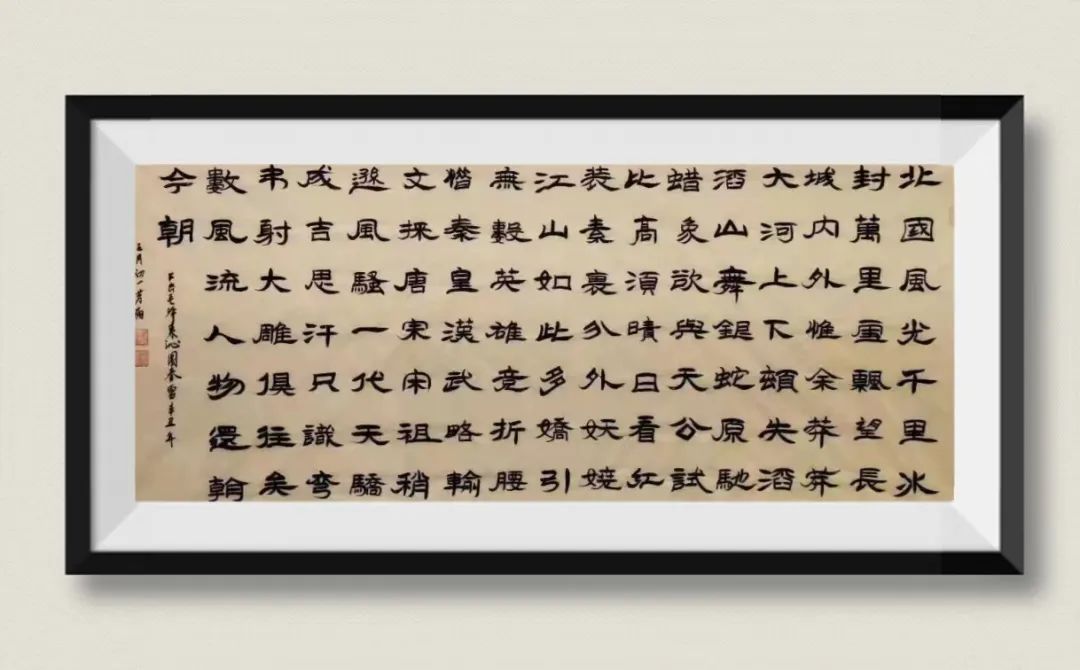 北國風光千里冰
封萬里雪飄望長
城内外惟余莽莽
大河上下頓失滔
滔山舞銀蛇原馳
蜡象欲與天公試
比高須晴日看紅
裝素裹分外妖嬈
江山如此多嬌引
無數英雄竞折腰
惜秦皇漢武略輸
文採唐宗宋祖稍
遜風騷一代天驕
成吉思汗只識彎
弓射大雕俱往矣
數風流人物還看
今朝
毛泽東沁園春雪辛丑年
五月初一